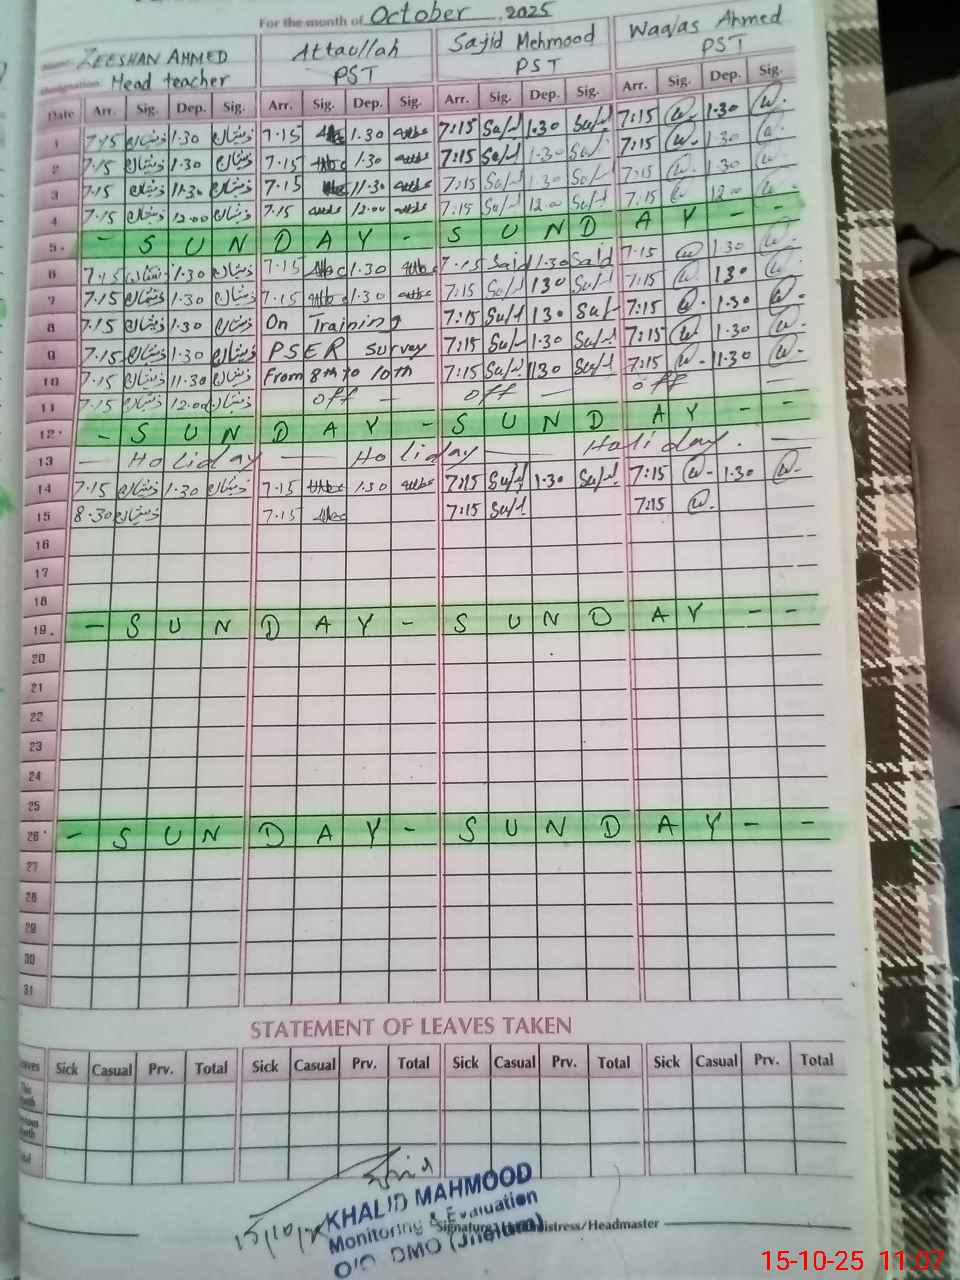 For the month of October 2025
Name: ZEESHAN AHMED Attaullah Sajid Mehmood Waqas Ahmed
Designation: Head teacher PST PST PST
Date Arr. Sig. Dep. Sig. Arr. Sig. Dep. Sig. Arr. Sig. Dep. Sig. Arr. Sig. Dep. Sig.
1 7.15 ذیشان 1.30 ذیشان 7.15 1.30 7:15 1.30 7:15 1.30
2 7.15 ذیشان 1.30 ذیشان 7.15 1.30 7:15 1.30 7:15 1.30
3 7.15 ذیشان 11.30 ذیشان 7.15 11.30 7:15 1.30 7:15 1.30
4 7.15 ذیشان 12.00 ذیشان 7.15 12.00 7:15 12.00 7:15 12.00
5. - S U N D A Y - S U N D A Y - -
6 7.15 ذیشان 1.30 ذیشان 7.15 1.30 7.15 Said 1.30 Said 7.15 1.30
7 7.15 ذیشان 1.30 ذیشان 7.15 1.30 7:15 130 7:15 130
8 7.15 ذیشان 1.30 ذیشان On Training 7:15 130 7:15 1.30
9 7.15 ذیشان 1.30 ذیشان PSER survey 7:15 1.30 7:15 1.30
10 7.15 ذیشان 11.30 ذیشان From 8th to 10th 7:15 1130 7:15 11.30
11 7.15 ذیشان 12.00 ذیشان off - off - off -
12. - S U N D A Y - S U N D A Y - -
13 - Holiday - Holiday - Holiday. -
14 7.15 ذیشان 1.30 ذیشان 7.15 1.30 7:15 1.30 7:15 1.30
15 8.30 ذیشان 7.15 7:15 7:15
16
17
18
19. - S U N D A Y - S U N D A Y - -
20
21
22
23
24
25
26. - S U N D A Y - S U N D A Y - -
27
28
29
30
31
STATEMENT OF LEAVES TAKEN
Leaves Sick Casual Prv. Total Sick Casual Prv. Total Sick Casual Prv. Total Sick Casual Prv. Total
This
KHALID MAHMOOD
15/10/25 Monitoring & Evaluation
/Headmaster
O/O DMO (Jhelum)
15-10-25 11:07